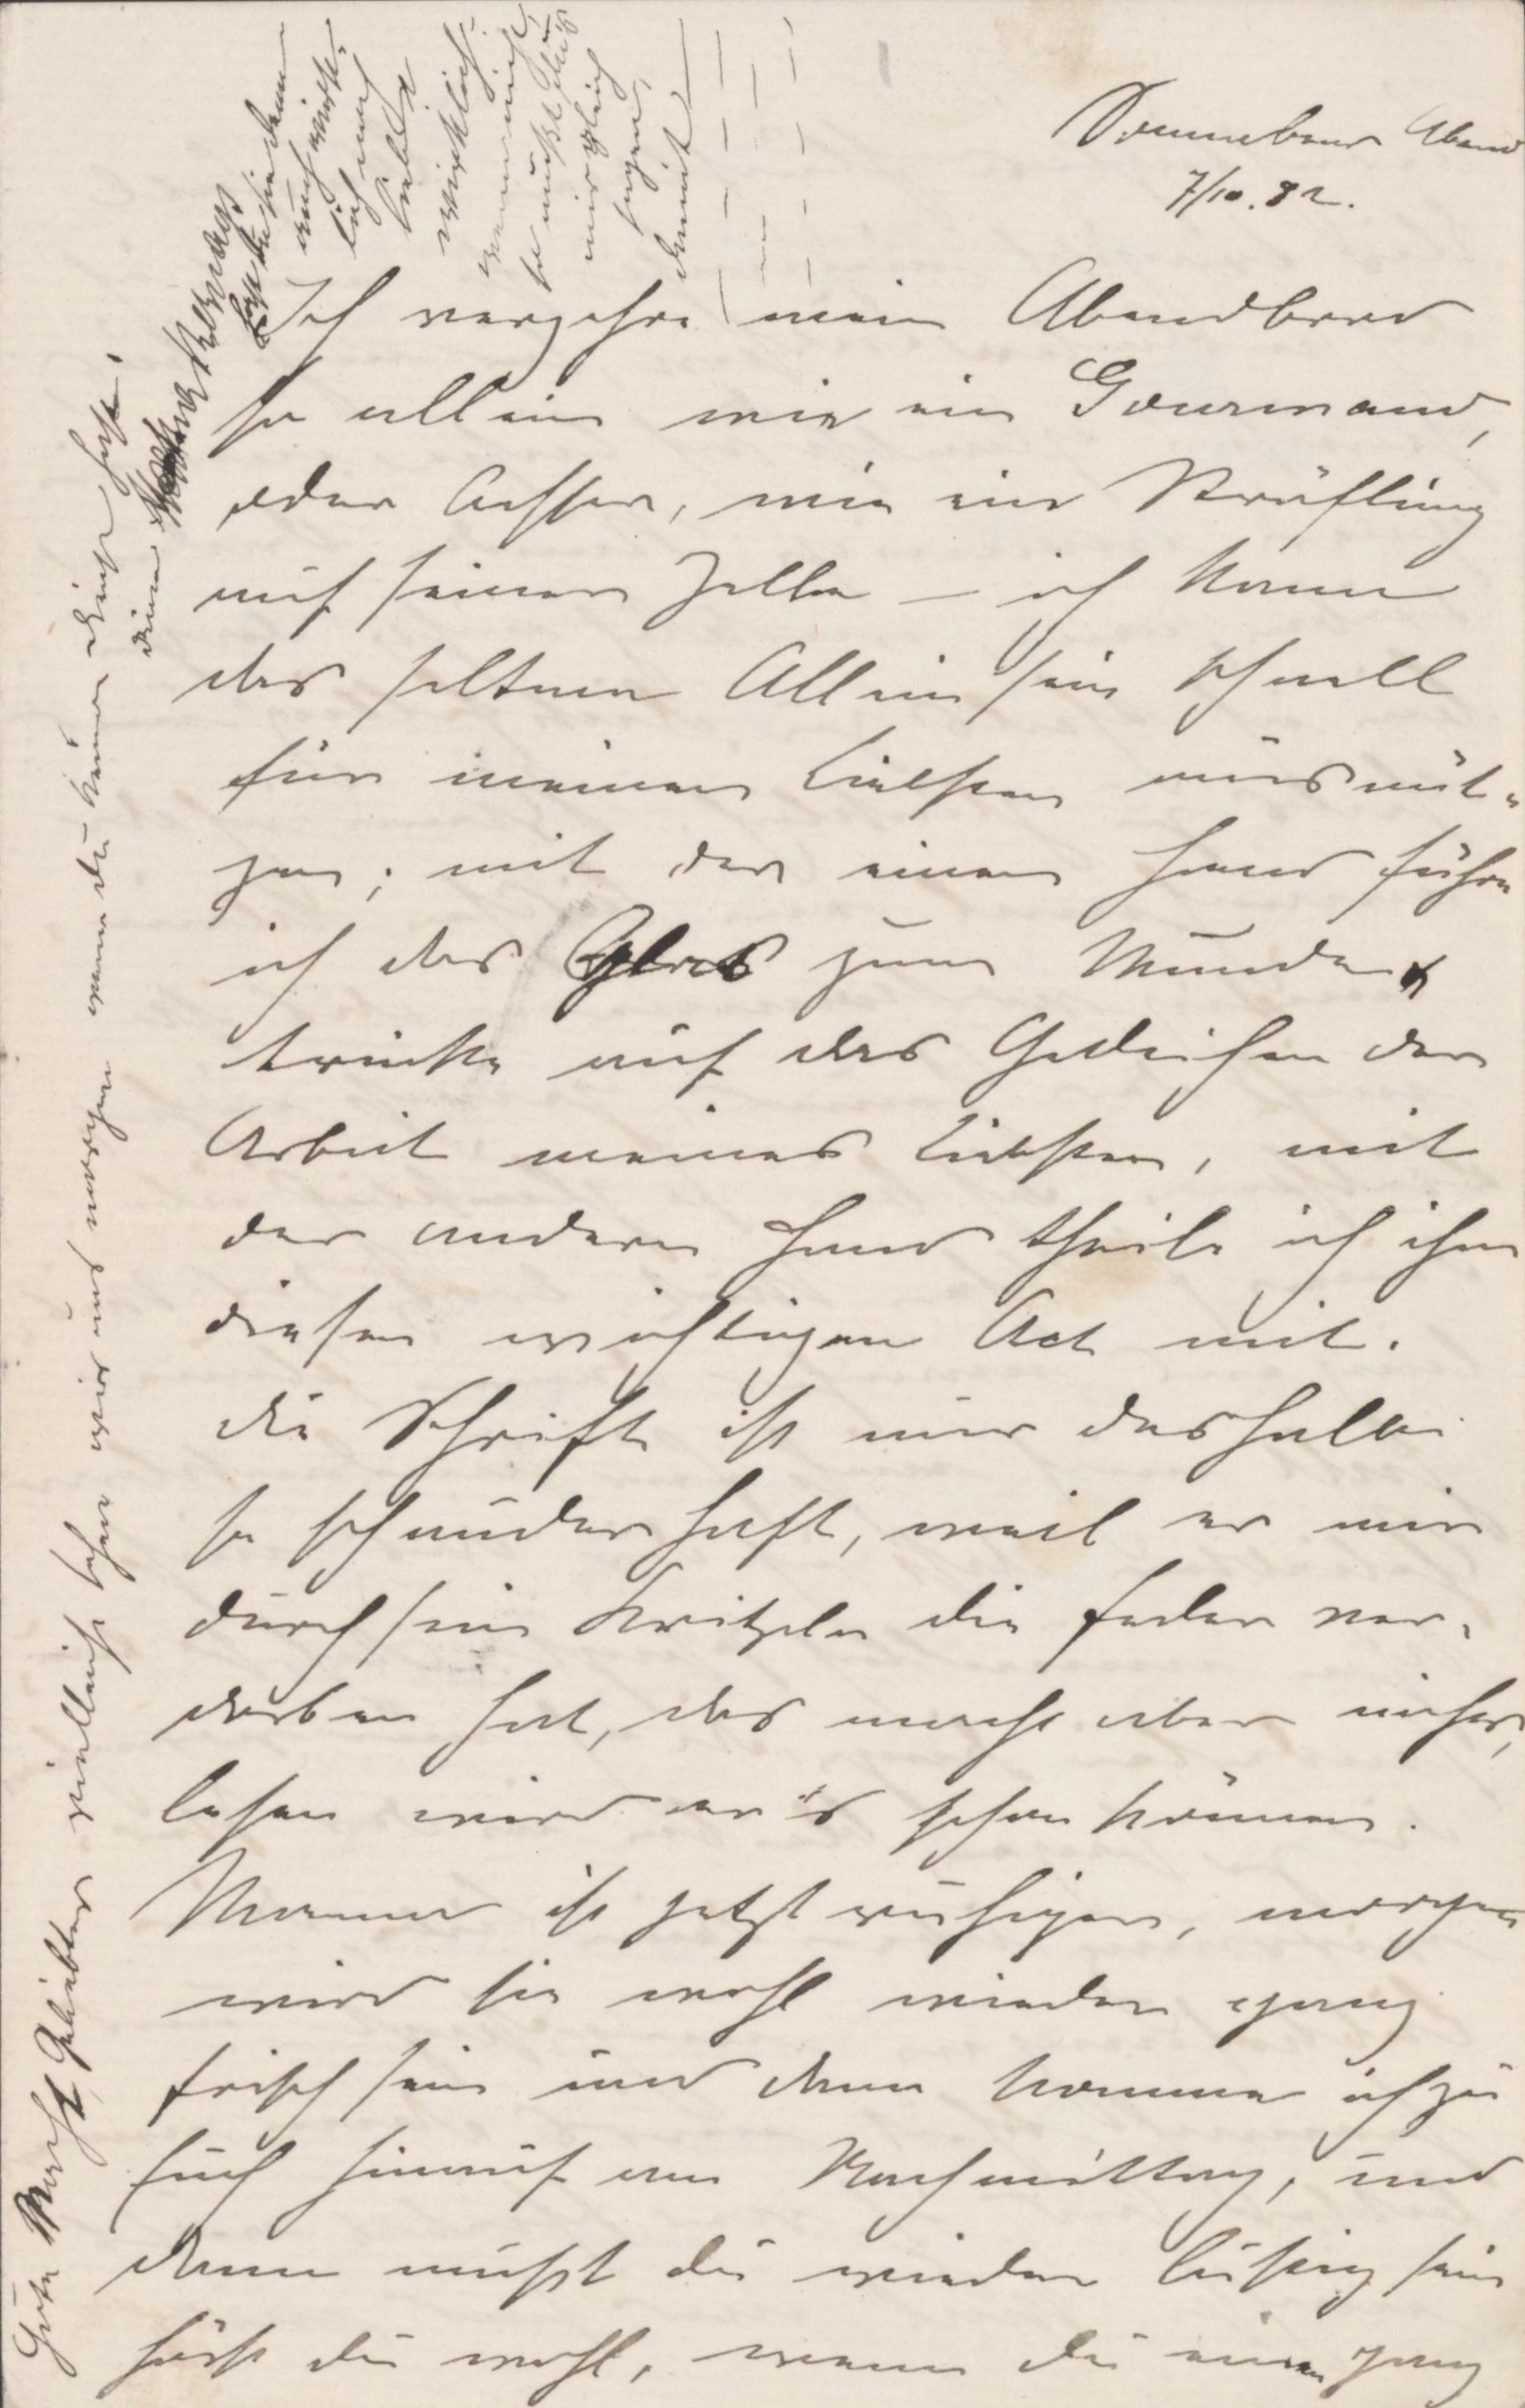 Sonnabend Abend
7/10. 82.
Ich verzehre mein Abendbrod
so allein wie ein Gourmand,
oder besser, wie ein Sträfling
auf seiner Zelle — ich kann
das seltne Alleinsein schnell
für meinen Liebsten ausnüt-
zen; mit der einen Hand führe
ich das Glas zum Munde &
trinke auf das Gedeihen der
Arbeit meines Liebsten, mit
der andern Hand theile ich ihm
diesen wichtigen Act mit.
Die Schrift ist nur deshalb
so schauderhaft, weil er mir
durch sein Kritzeln die Feder ver-
dorben hat, das macht aber nichts,
lesen wird er's schon können.
Mama ist jetzt ruhiger, morgen
wird sie wohl wieder ganz
frisch sein und dann komme ich zu
Euch hinauf am Nachmittag, und
dann mußt du wieder lustig sein
hörst du wohl, wenn du einen ganz
Gute Nacht, Geliebter vielleicht sehen wir uns morgen wenn du keinen Dienst hast.
deine
bist du sie denn
auch wirk-
lich mein
Liebster
wirklich?
wenn nicht,
so mußt du's
mir gleich
sagen,
damit